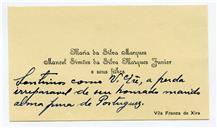 Maria da Silva Marques
Manoel Simões da Silva Marques Junior
e seus filhos
Sentimos como V. Ex.ª, a perda
irreparavel de seu honrado marido
alma pura de Portuguez.
Vila Franca de Xira